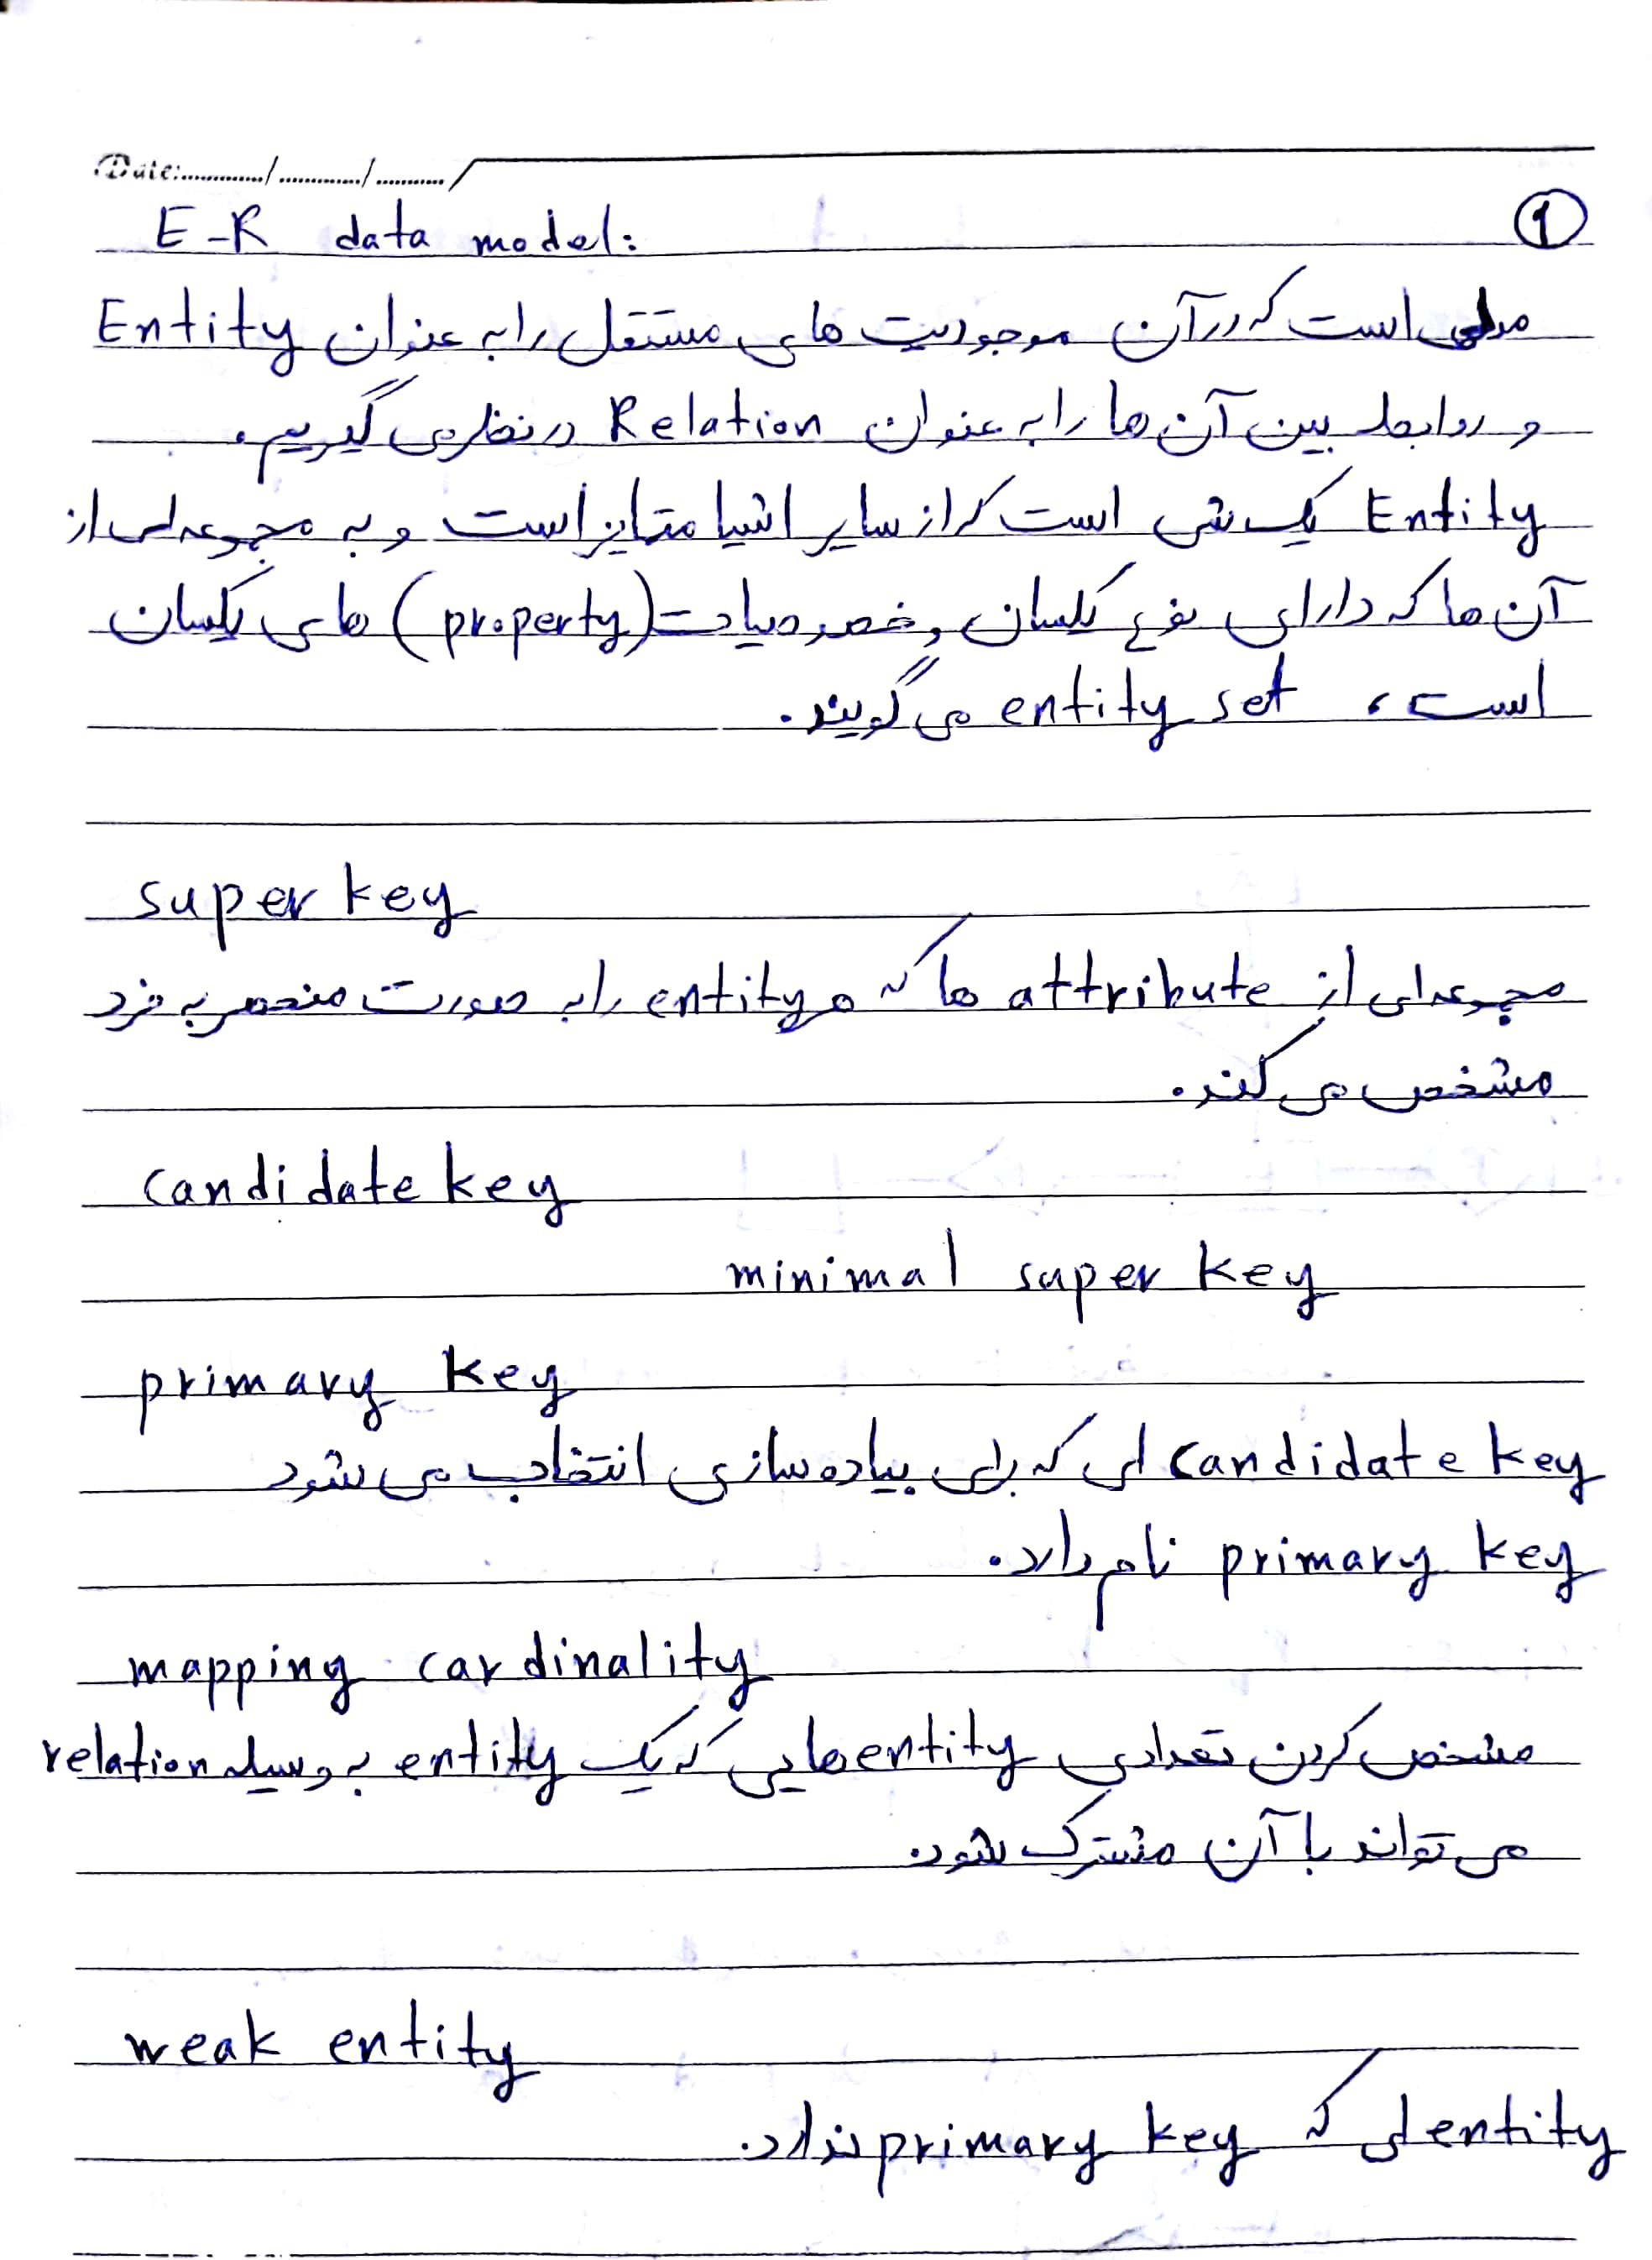 Date:............/............/..........
E-R data model:
①
مدلی است که در آن موجودیت های مستقل را به عنوان Entity
و روابط بین آن ها را به عنوان Relation در نظر می گیریم.
Entity یک شی است که از سایر اشیا متمایز است و به مجموعه ای از
آن ها که دارای نوع یکسان و خصوصیات (property) های یکسان
است، entity set می گویند.
super key
مجموعه ای از attribute ها که هر entity را به صورت منحصر به فرد
مشخص می کند.
candidate key
minimal super key
primary key
candidate key ای که برای پیاده سازی انتخاب می شود
primary key نام دارد.
mapping cardinality
مشخص کردن تعدادی entity هایی که یک entity به وسیله relation
می تواند با آن مشترک شود.
weak entity
entity ای که primary key ندارد.